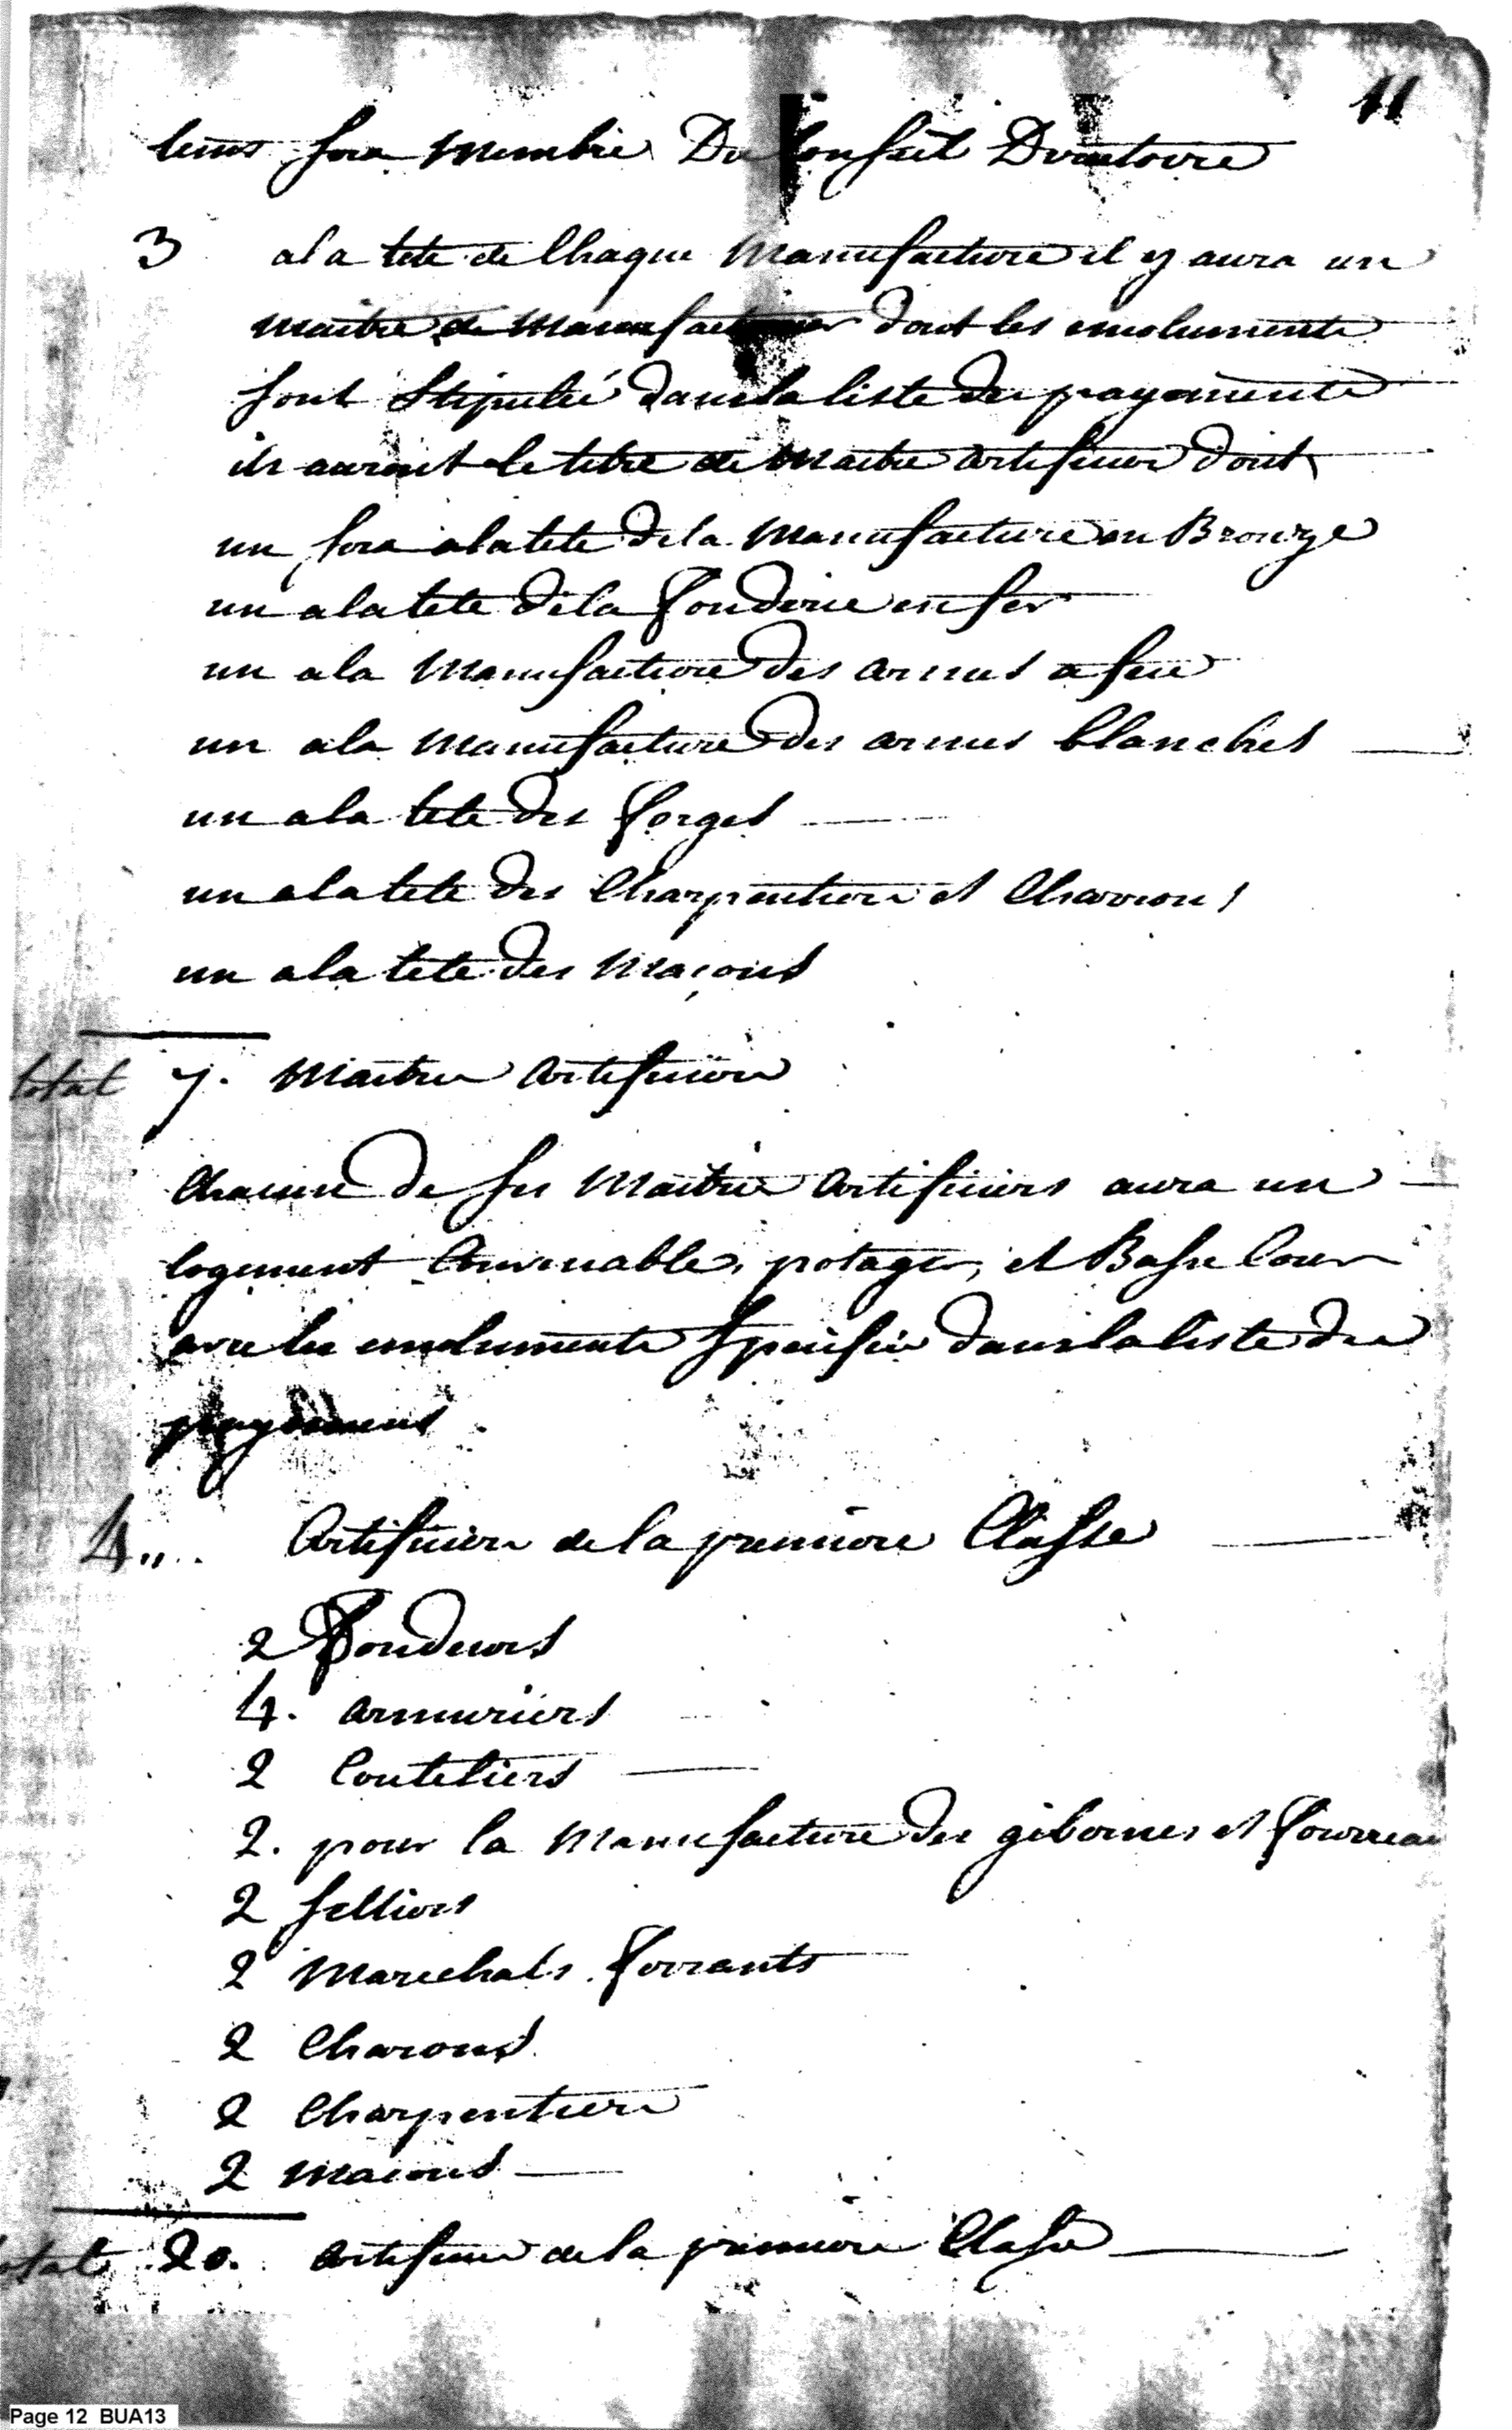 11
leurs sera Membre Du Conseil Directoire
3 a la tete de Chaque Manufacture il y aura un
Maitre de Manufacturier dont les emolumente
sont Stipulié dans la liste des payemente
ils auront le titre de Maitre artificier dont
un sera a la tete de la Manufacture en Bronze
un a la tete de la Fonderie en fer
un a la Manufacture des armes a feu
un a la Manufacture des armes blanches
un a la tete des Forges
un a la tete des Charpentiers et Charrons
un a la tete des Maçons
total 7. Maitres artificiers
Chacun de ses Maitres artificiers aura un
logement Convenable, potager, et Basse Cour
avec les emolumente Specifiés dans la liste des
payemens
4,,. Artificiers de la premiere Classe
2 Fondeurs
4. armuriers
2 Couteliers
2. pour la Manufacture des gibernes et Fourreau
2 selliers
2 Marechals Ferrants
2 Charons
2 Charpentiers
2 Macons
total 20. artificiers de la premiere Classe
Page 12 BUA13